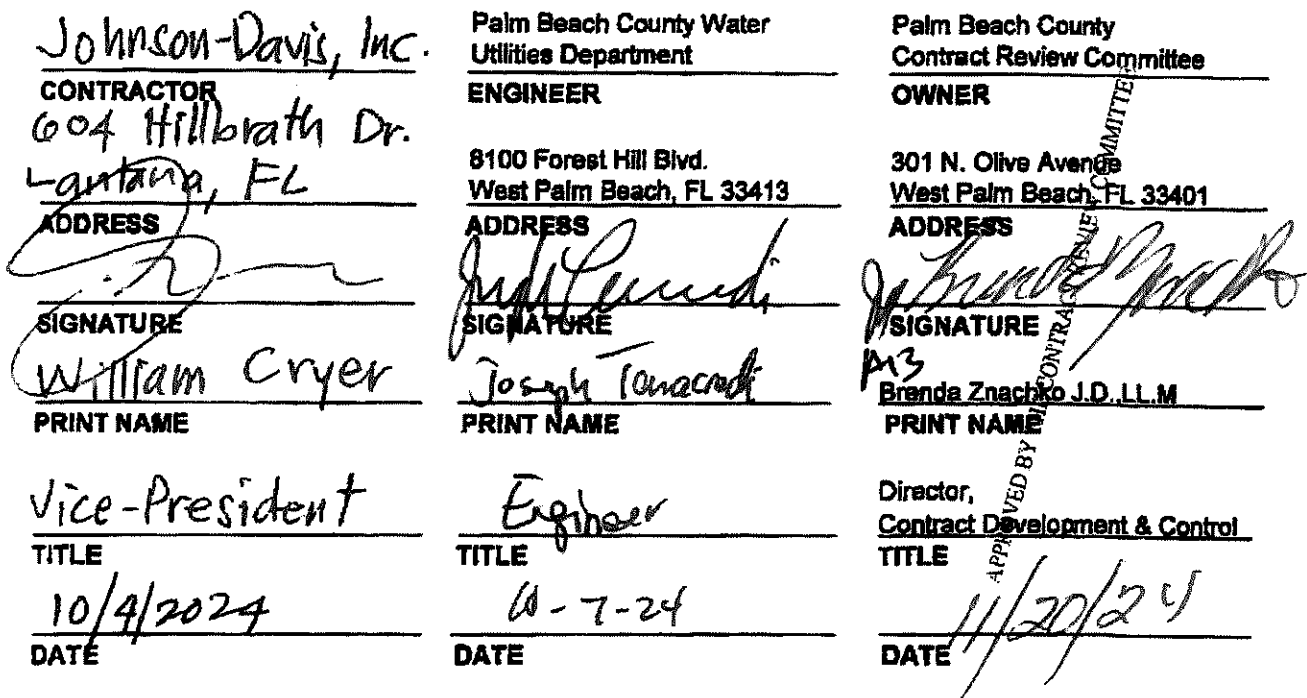 Johnson-Davis, Inc.
CONTRACTOR
604 Hillbrath Dr.
Lantana, FL
ADDRESS
SIGNATURE
William Cryer
PRINT NAME
Vice-President
TITLE
10/4/2024
DATE
Palm Beach County Water
Utilities Department
ENGINEER
8100 Forest Hill Blvd.
West Palm Beach, FL 33413
ADDRESS
SIGNATURE
Joseph Tanacredi
PRINT NAME
Engineer
TITLE
10-7-24
DATE
Palm Beach County
Contract Review Committee
OWNER
301 N. Olive Avenue
West Palm Beach, FL 33401
ADDRESS
SIGNATURE
Brenda Znachko J.D.,LL.M
PRINT NAME
Director,
Contract Development & Control
TITLE
11/20/24
DATE
APPROVED BY THE CONTRACT REVIEW COMMITTEE